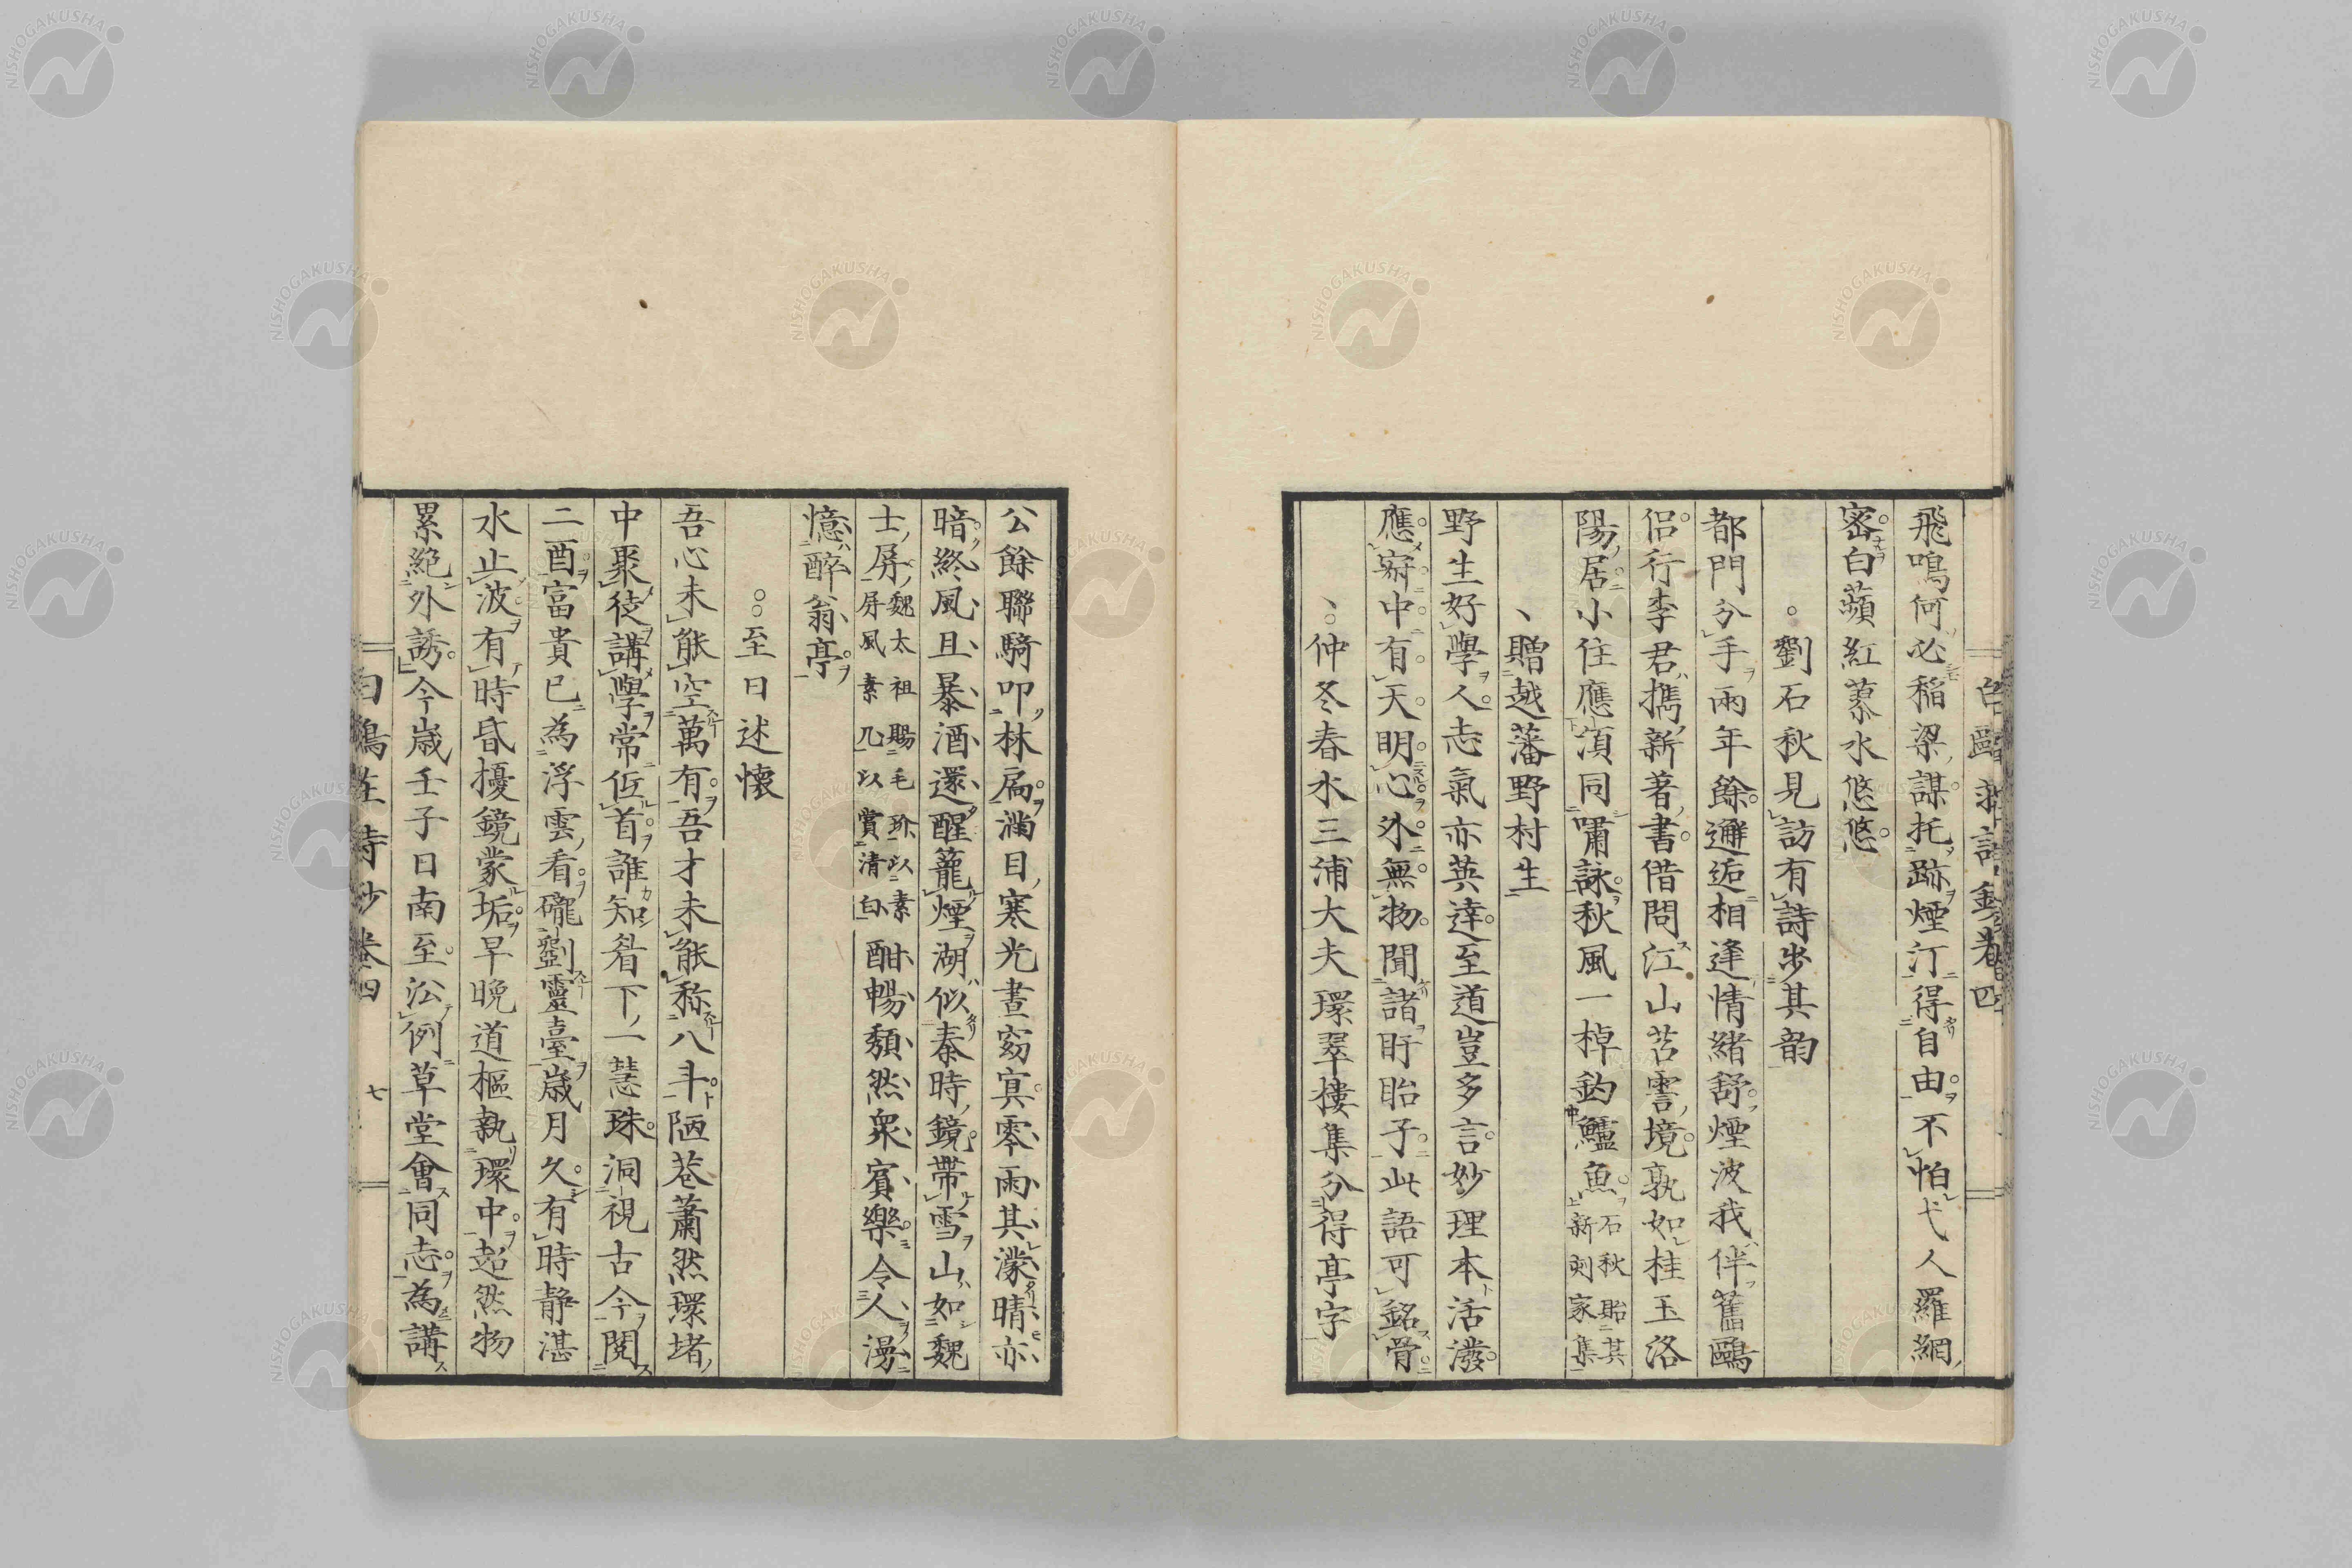 飛鳴何必稲梁謀托跡煙汀得自由不怕弋人羅網
密白蘋紅蓼水悠悠
劉石秋見訪有詩步其韵
都門分手兩年餘邂逅相逢情緒舒煙波我伴舊鷗
侶行李君携新著書借問江山苦雪境孰如桂玉洛
陽居小住應須同嘯詠秋風一棹釣鱸魚石秋貽其新刻家集
贈越藩野村生
野生好學人志氣亦英達至道豈多言妙理本活潑
應寂中有天明心外無物聞諸盱眙子此語可銘骨
仲冬春水三浦大夫環翠樓集分得亭字
公餘聯騎叩林扃満目寒光晝窈寘零雨其濛晴亦
暗終風且暴酒還醒籠煙湖似秦時鏡帶雪山如魏
士屏魏太祖賜毛玠以素屏風素几以賞清白酣暢頽然衆賓樂令人漫
憶醉翁亭
至日述懷
吾心未能空萬有吾才未能称八斗陋巷蕭然環堵
中聚徒講學常低首誰知眉下一慧珠洞視古今閲
二酉富貴已為浮雲看礲劉靈臺歳月久有時靜湛
水止波有時昏擾鏡蒙垢早晩道樞執環中超然物
累絶外誘今歳壬子日南至㳂例草堂會同志為講
白鷗荘詩鈔巻四
七